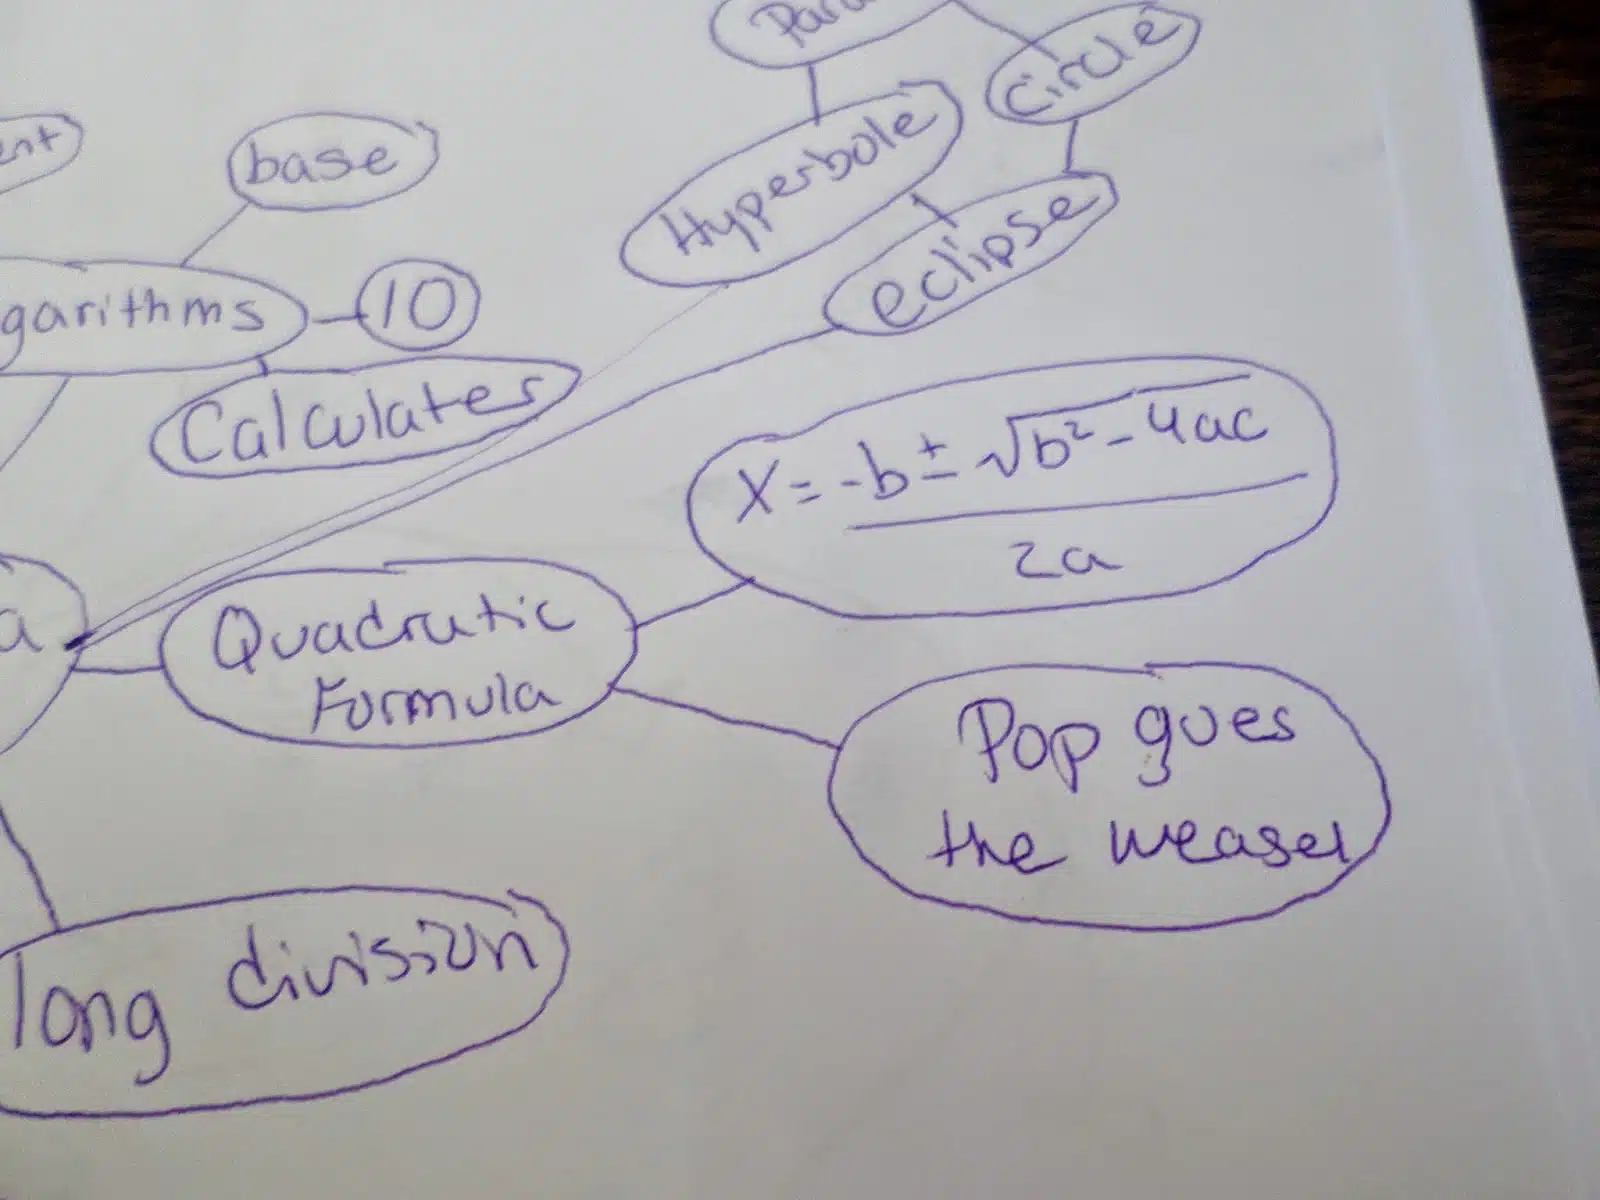 Circle
Hyperbole
eclipse
base
10
Calculater
X = -b ± √b² - 4ac
2a
Quadratic
Formula
Pop goes
the weasel
long division